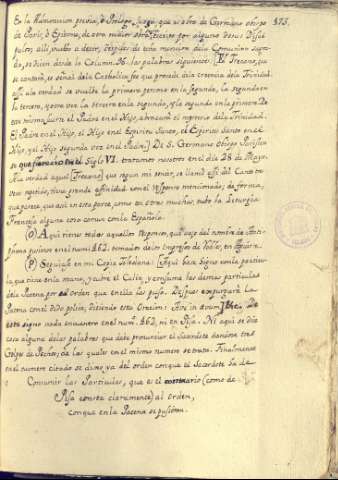 En la Admonicion previa, ò Prologo, juzga, que es obra de Germano obispo 185.
de Paris, ò Epitome, de otra maior obra, hecho por alguno de sus Disci-
pulos: alli puedes à decir, despues de esta manera de la Comunion sagra-
da, se dicen desde la Column. 96. las palabras siguientes: El Trecano, que
se cantarà, es señal de la Catholica fee que procede de la creencia de la Trinidad.
assi a la verdad se vuelve la primera persona en la segunda, la segunda en
la tercera, y otra vez la tercera en la segunda, y la segunda en la primera. De
este mismo suerte el Padre en el Hijo, abraza el mysterio de la Trinidad:
El Padre en el Hijo, el Hijo en el Espiritu Santo, el Espiritu Santo en el
Hijo, y el Hijo segunda vez en el Padre.) De S. Germano Obispo Parisien
se que florecio en el Siglo VI. tratamos nosotros en el dia 28 de Mayo.
A la verdad aquel (Trecano) que segun mi sentir, se llamò assi del Canto tres
veces repetido, tiene grande afinidad con el responso mencionado; de forma,
que parece, que assi en esta parte, como en otras muchas, tuvo la Liturgia
Francesa alguna cosa comun con la Española.
(O) Aqui tienes todos aquellos Responsos, que vajo del nombre de Anti-
phona pusimos en el num. 162. tomados de los Impresos de Ximenez, en Aguirre.
(P) Seguiase en mi Copia Toledana: (Aqui hace signo con la particu-
la, que tiene en la mano, sobre el Caliz, y consuma las demas particulas
de la Patena por el orden que en ella las puso. Despues expurgarà la
Patena con el dedo polize, diciendo esta Oracion: Ave in aevum &c. De
este signo nada encuentro en el num. 162, ni en Pisa. Ni aqui se dice
cosa alguna de las palabras que debe pronunciar el Sacerdote dandose tres
Golpes de Pechos, de las quales en el mismo numero se trata. Finalmente
en el numero citado se dice, ya del orden con que el Sacerdote ha de
Comunicar las Particulas, que es el contrario (como de
Pisa consta claramente) al orden,
con que en la Patena se pusieron.